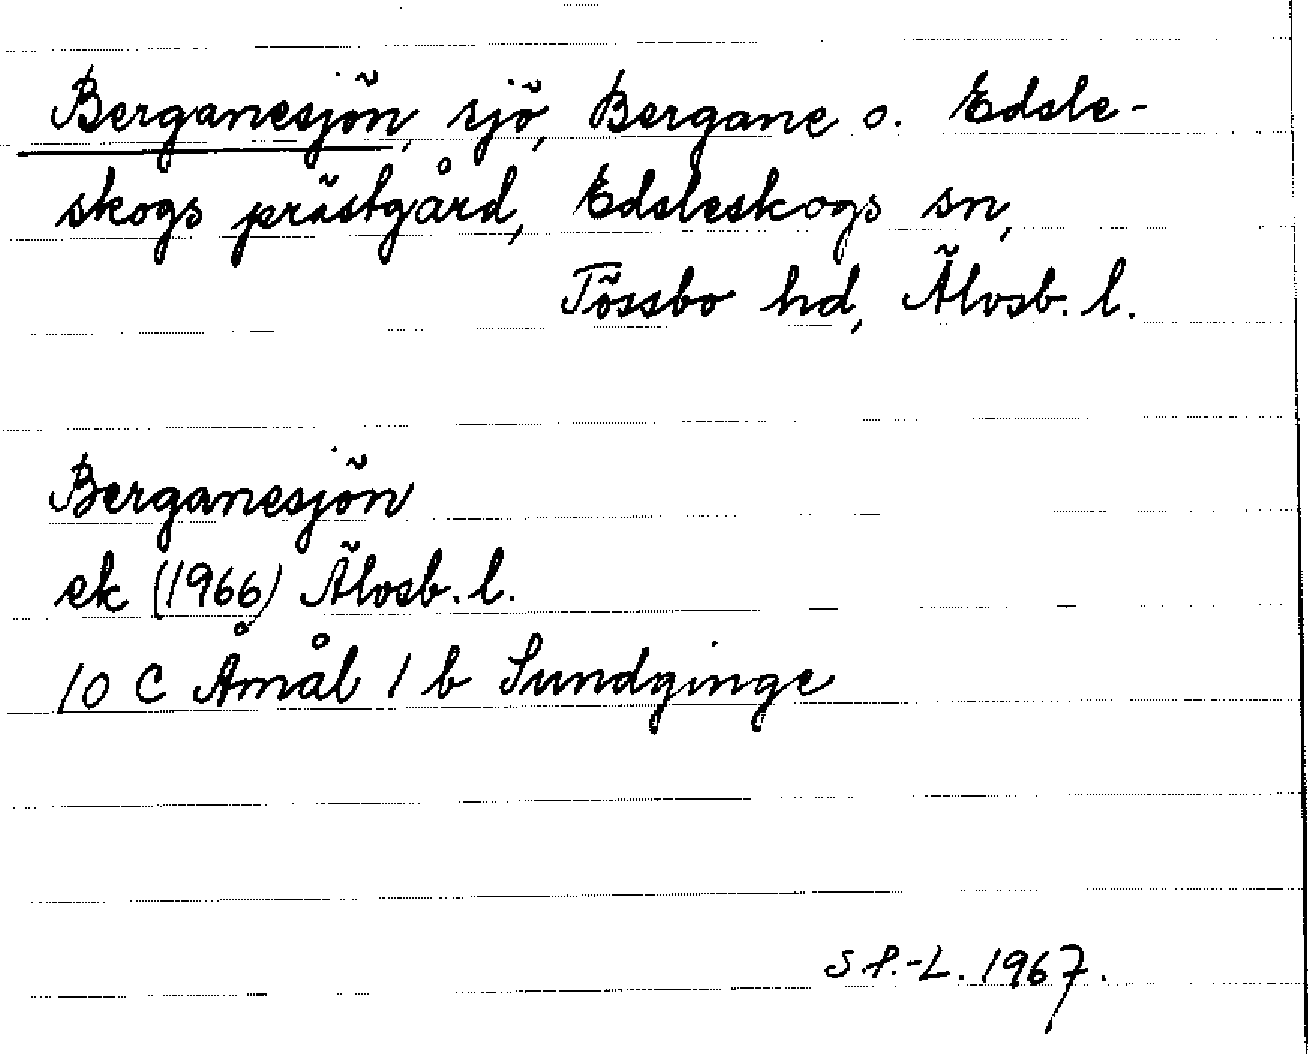 Berganesjön, sjö, Bergane o. Edsle-
skogs prästgård, Edsleskogs sn,
Tössbo hd, Älvsb. l.
Berganesjön
ek (1966) Älvsb. l.
10 C Åmål 1 b Sundginge
S P.-L. 1967.